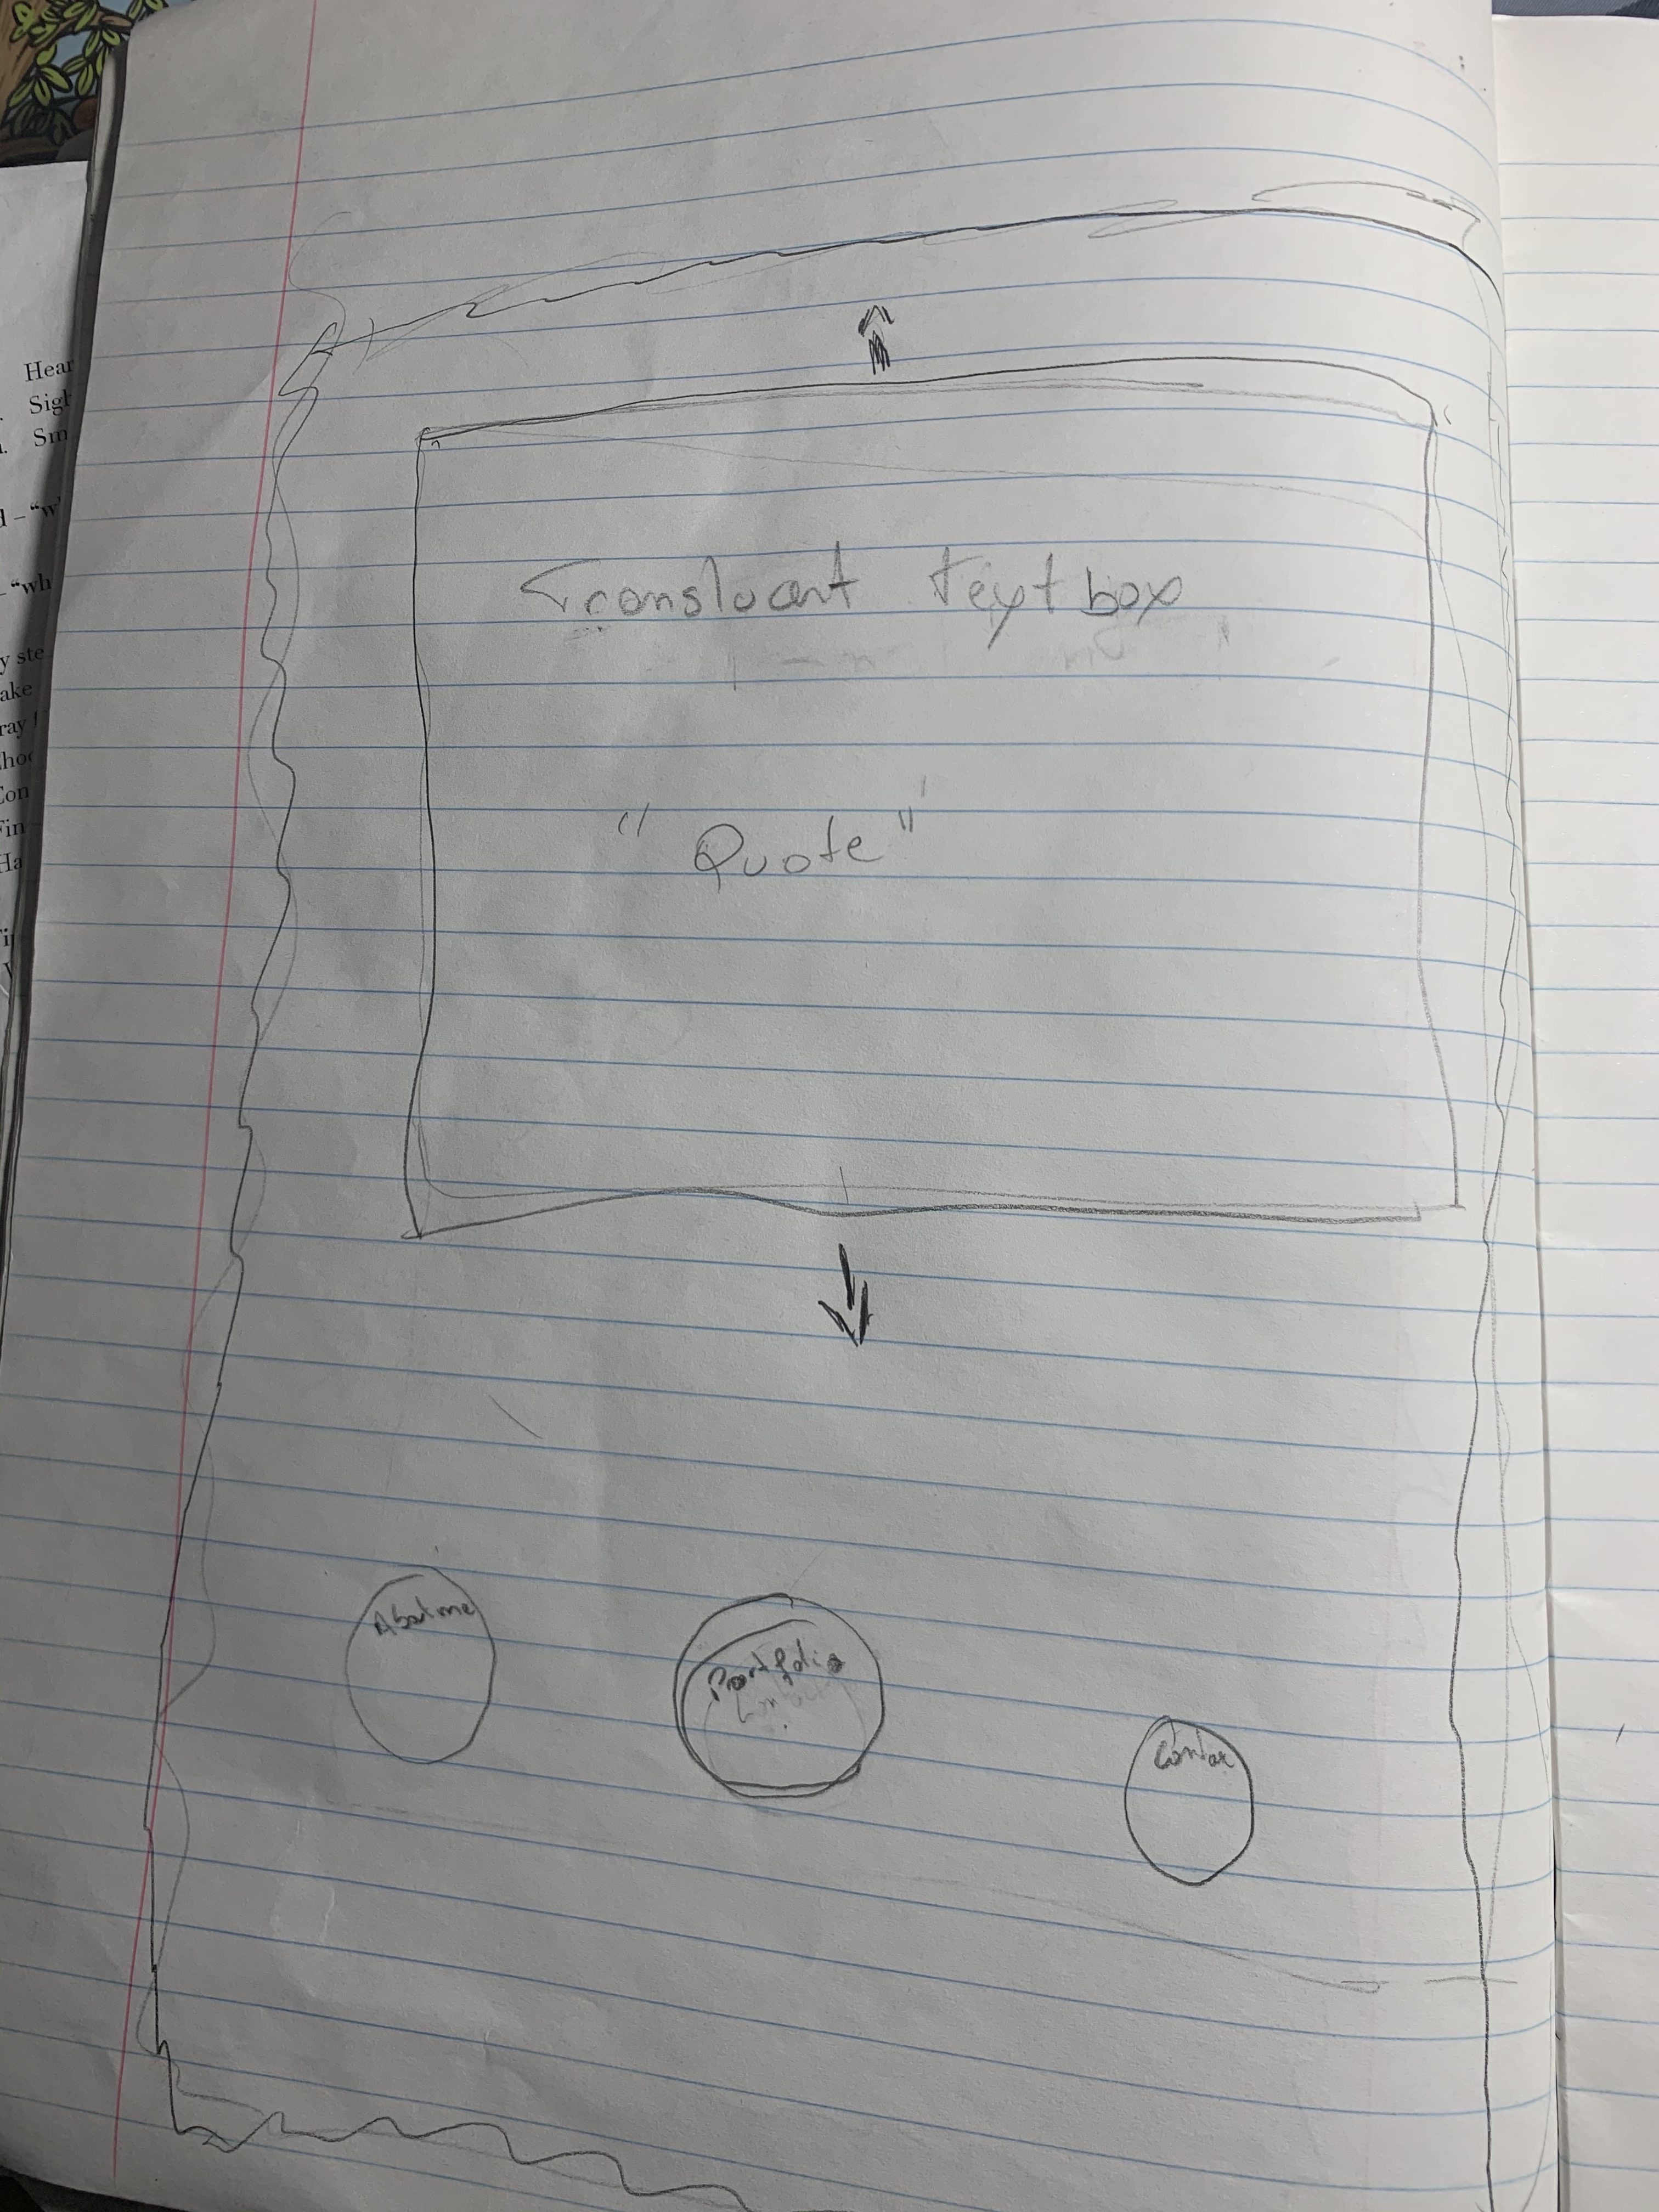 Hear
Sigh
Sm
d – “w
– “wh
y ste
ake
ray f
Con
Fin
Ha
Translucant textbox
"Quote"
About me
Portfolio
Contac